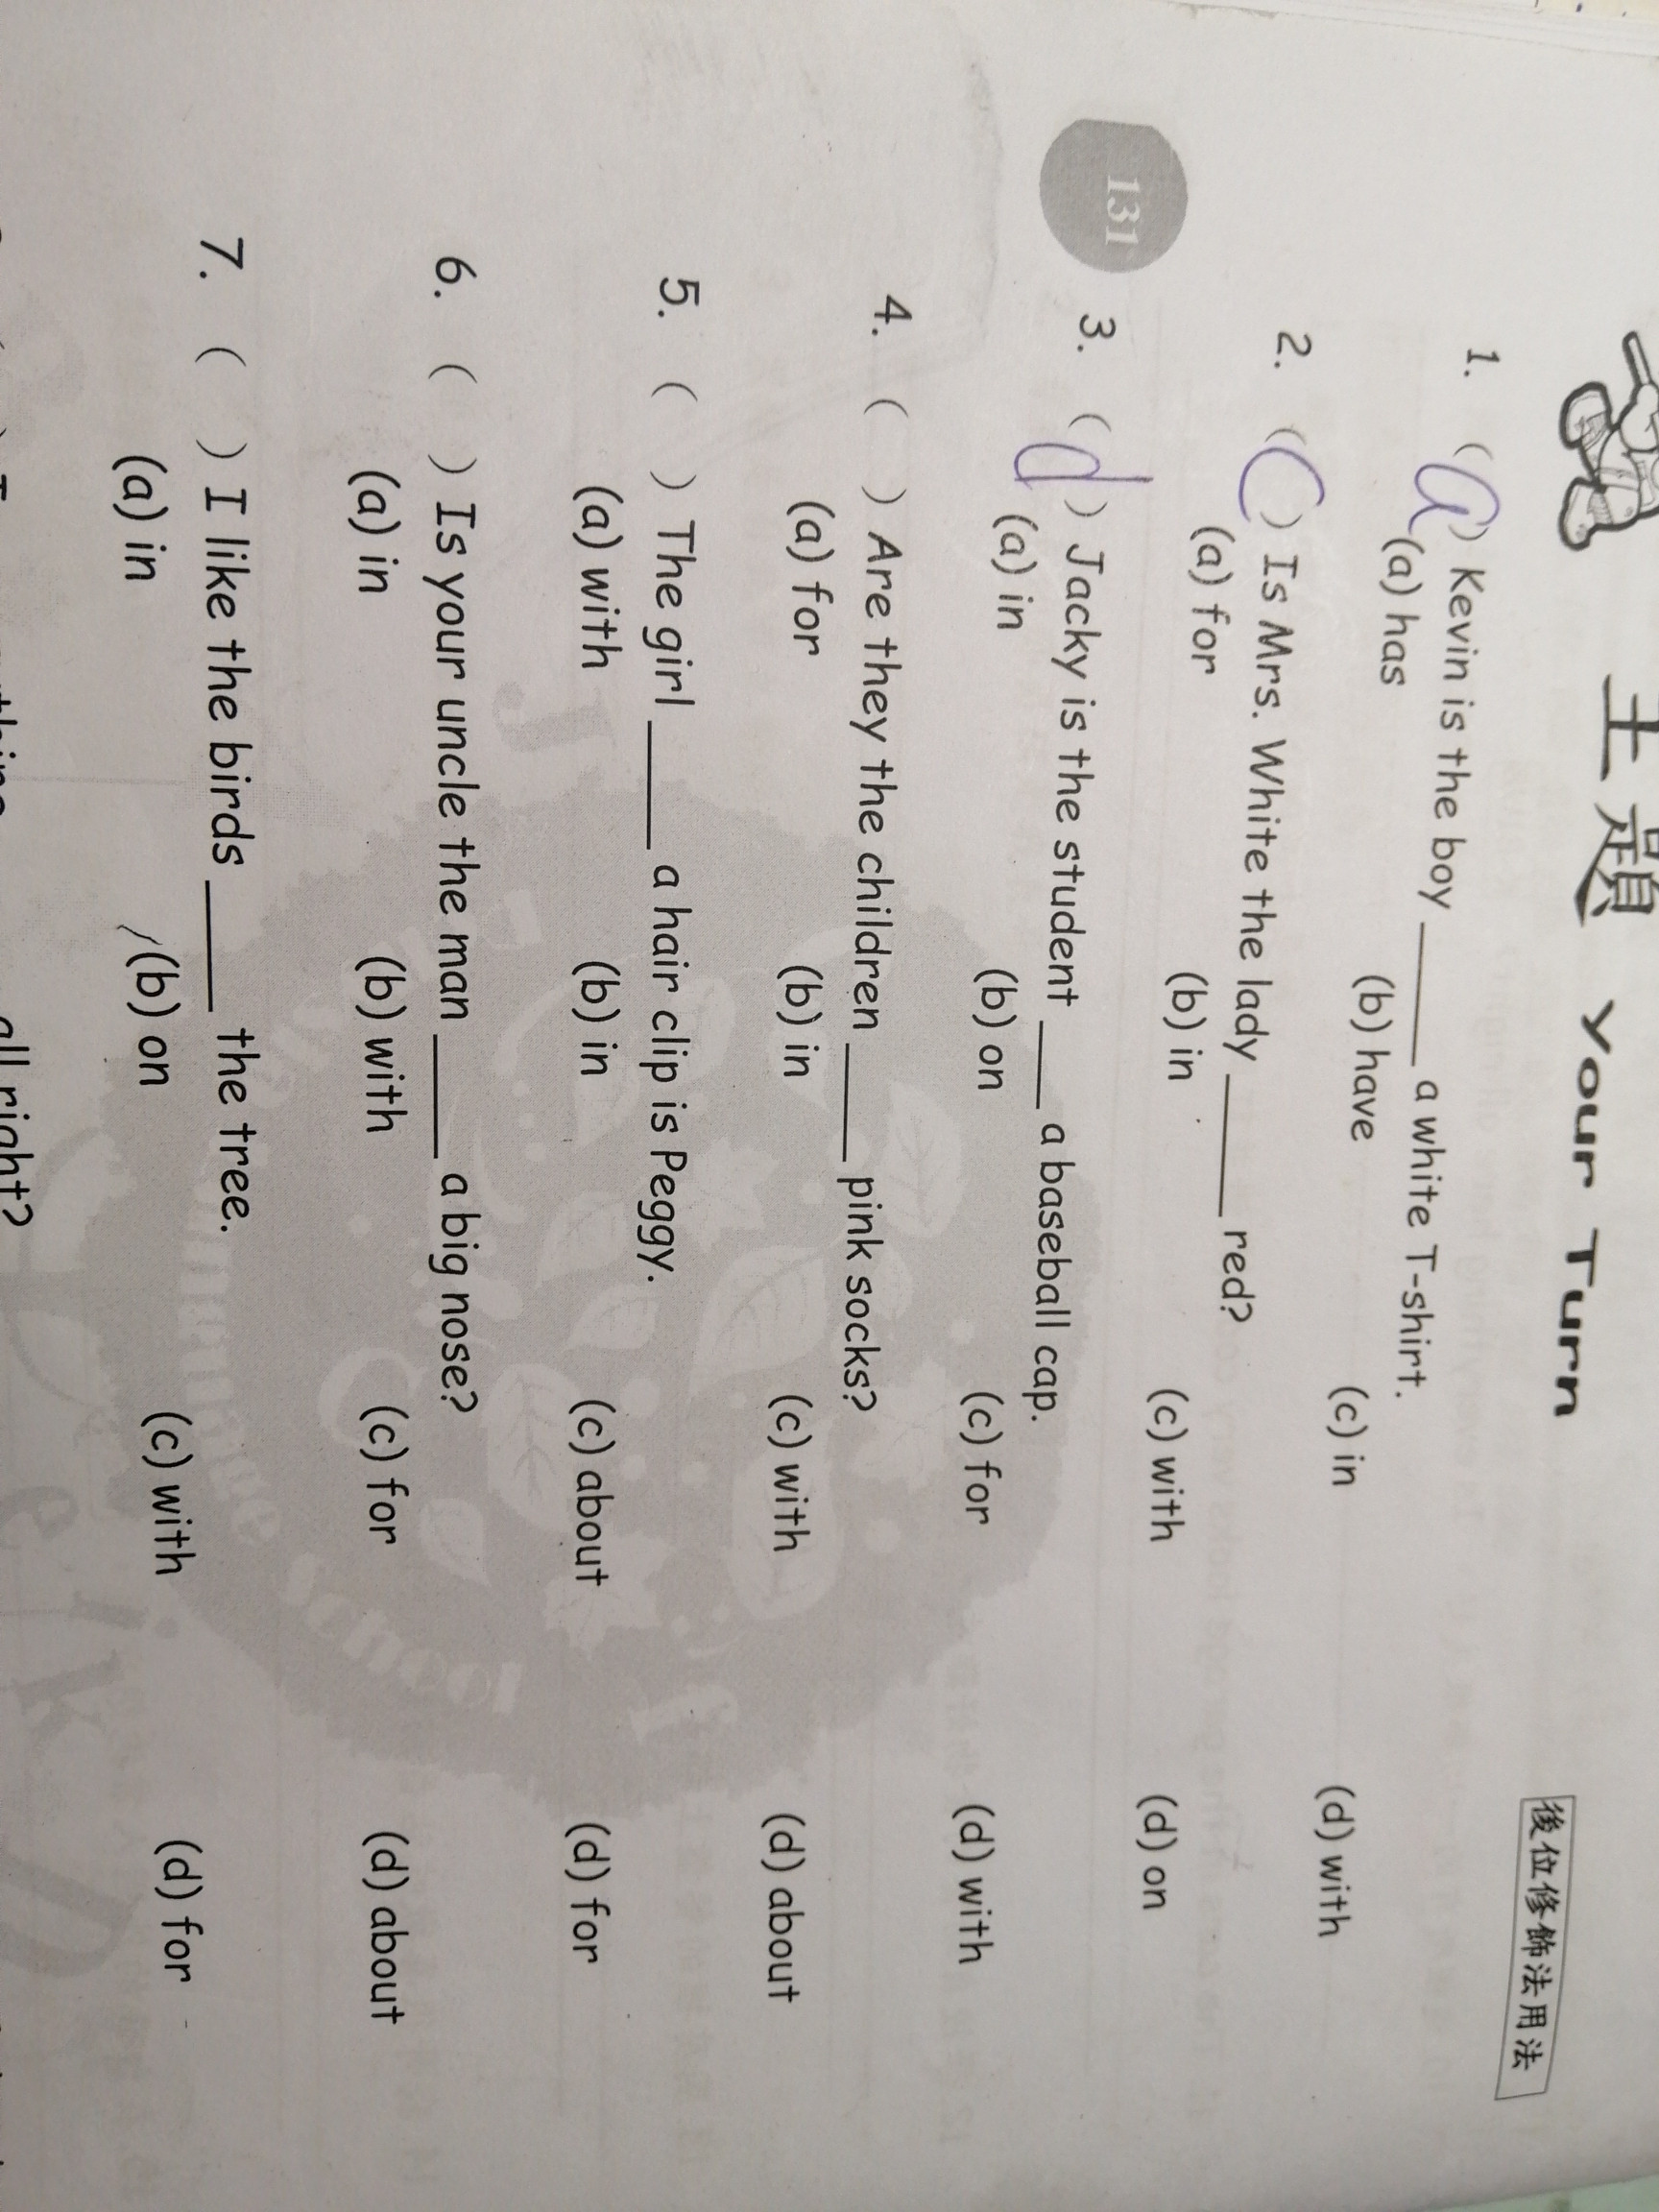 主題 Your Turn
後位修飾法用法
1. (a) Kevin is the boy ______ a white T-shirt.
(a) has (b) have (c) in (d) with
2. (c) Is Mrs. White the lady ______ red?
(a) for (b) in (c) with (d) on
3. (d) Jacky is the student ____ a baseball cap.
(a) in (b) on (c) for (d) with
131
4. ( ) Are they the children _____ pink socks?
(a) for (b) in (c) with (d) about
5. ( ) The girl _____ a hair clip is Peggy.
(a) with (b) in (c) about (d) for
6. ( ) Is your uncle the man _____ a big nose?
(a) in (b) with (c) for (d) about
7. ( ) I like the birds _____ the tree.
(a) in (b) on (c) with (d) for
all right?